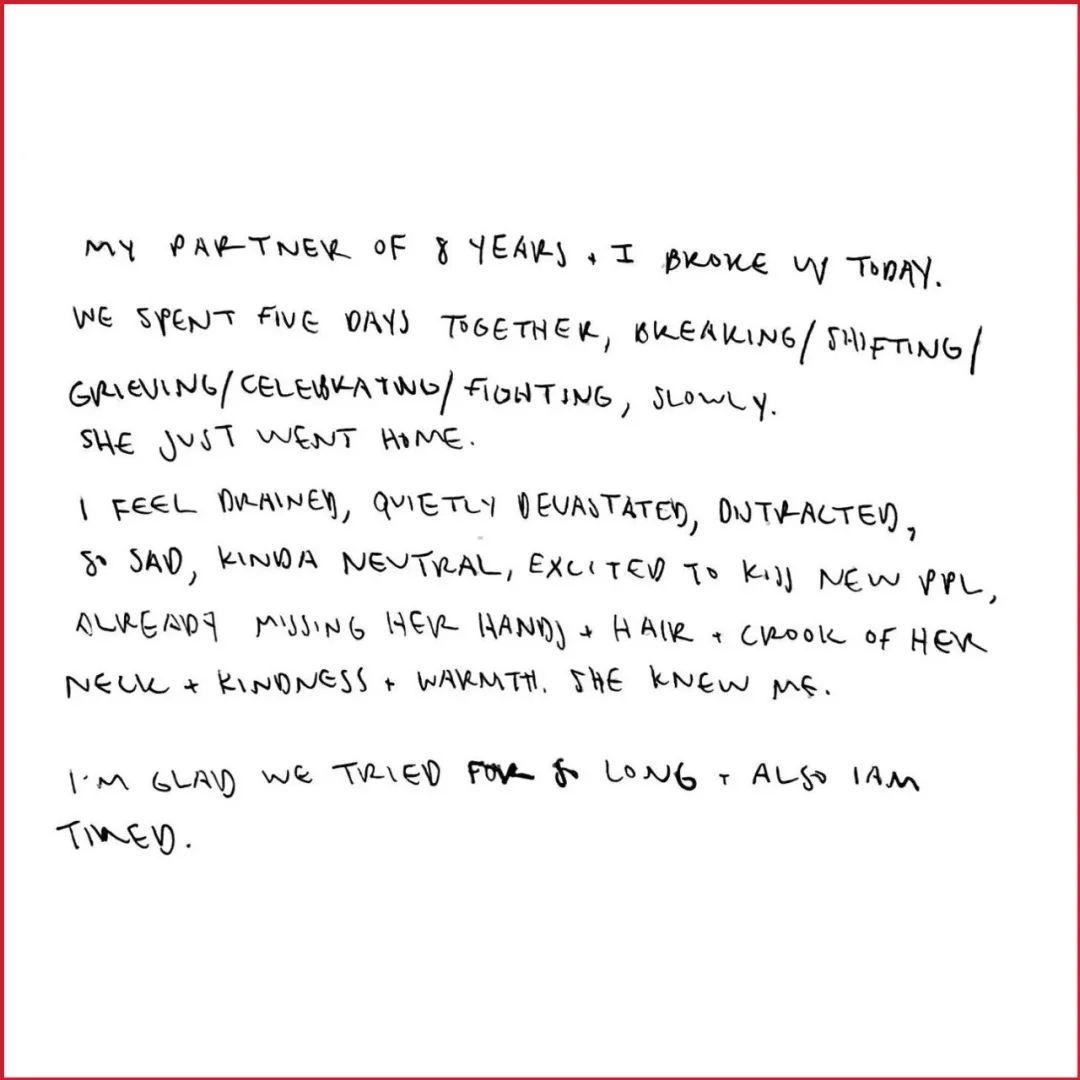 MY PARTNER OF 8 YEARS + I BROKE UP TODAY.
WE SPENT FIVE DAYS TOGETHER, BREAKING/SHIFTING/
GRIEVING/CELEBRATING/FIGHTING, SLOWLY.
SHE JUST WENT HOME.
I FEEL DRAINED, QUIETLY DEVASTATED, DISTRACTED,
SO SAD, KINDA NEUTRAL, EXCITED TO KISS NEW PPL,
ALREADY MISSING HER HANDS + HAIR + CROOK OF HER
NECK + KINDNESS + WARMTH. SHE KNEW ME.
I'M GLAD WE TRIED FOR SO LONG + ALSO I AM
TIRED.